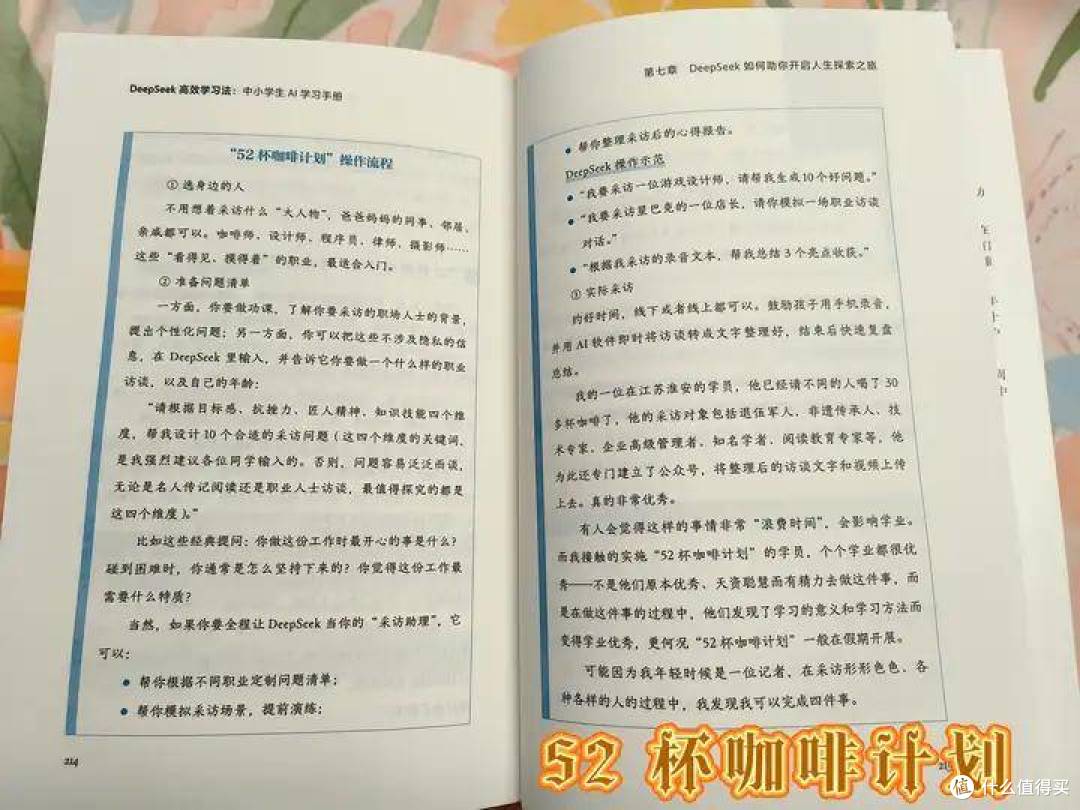 DeepSeek 高效学习法：中小学生 AI 学习手册
“52 杯咖啡计划”操作流程
① 选身边的人
不用想着采访什么“大人物”，爸爸妈妈的同事、邻居、
亲戚都可以。咖啡师、设计师、程序员、律师、摄影师……
这些“看得见、摸得着”的职业，最适合入门。
② 准备问题清单
一方面，你要做功课，了解你要采访的职场人士的背景，
提出个性化问题；另一方面，你可以把这些不涉及隐私的信
息，在 DeepSeek 里输入，并告诉它你要做一个什么样的职业
访谈，以及自己的年龄：
“请根据目标感、抗挫力、匠人精神、知识技能四个维
度，帮我设计 10 个合适的采访问题（这四个维度的关键词，
是我强烈建议各位同学输入的。否则，问题容易泛泛而谈，
无论是名人传记阅读还是职业人士访谈，最值得探究的都是
这四个维度）。”
比如这些经典提问：你做这份工作时最开心的事是什么？
碰到困难时，你通常是怎么坚持下来的？你觉得这份工作最
需要什么特质？
当然，如果你要全程让 DeepSeek 当你的“采访助理”，它
可以：
● 帮你根据不同职业定制问题清单；
● 帮你模拟采访场景，提前演练；
214
第七章 DeepSeek 如何助你开启人生探索之旅
● 帮你整理采访后的心得报告。
DeepSeek 操作示范
● “我要采访一位游戏设计师，请帮我生成10个好问题。”
● “我要采访星巴克的一位店长，请你模拟一场职业访谈
对话。”
● “根据我采访的录音文本，帮我总结 3 个亮点收获。”
③ 实际采访
约好时间，线下或者线上都可以。鼓励孩子用手机录音，
并用 AI 软件即时将访谈转成文字整理好，结束后快速复盘
总结。
我的一位在江苏淮安的学员，他已经请不同的人喝了 30
多杯咖啡了，他的采访对象包括退伍军人、非遗传承人、技
术专家、企业高级管理者、知名学者、阅读教育专家等，他
为此还专门建立了公众号，将整理后的访谈文字和视频上传
上去。真的非常优秀。
有人会觉得这样的事情非常“浪费时间”，会影响学业。
而我接触的实施“52 杯咖啡计划”的学员，个个学业都很优
秀——不是他们原本优秀、天资聪慧而有精力去做这件事，而
是在做这件事的过程中，他们发现了学习的意义和学习方法而
变得学业优秀，更何况“52 杯咖啡计划”一般在假期开展。
可能因为我年轻时候是一位记者，在采访形形色色、各
种各样的人的过程中，我发现我可以完成四件事。
52 杯咖啡计划
值 什么值得买